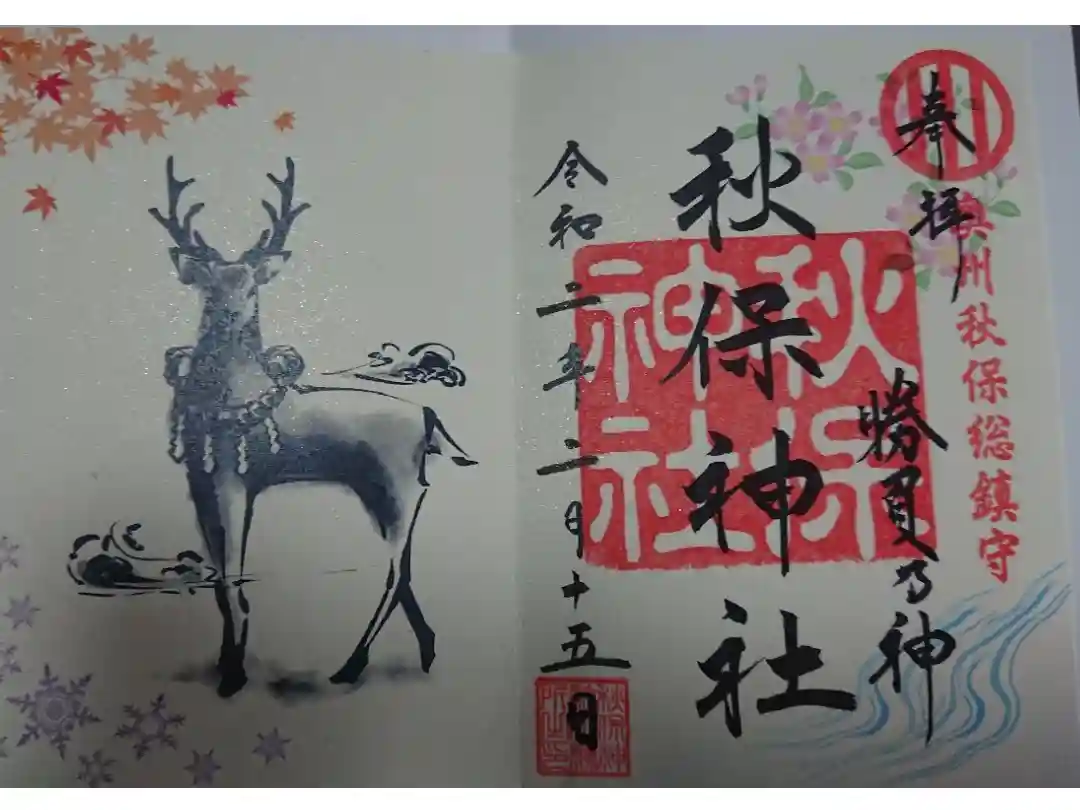 奉拝
奥州秋保総鎮守
勝負乃神
秋保神社
秋保
神社
令和二年二月十五日